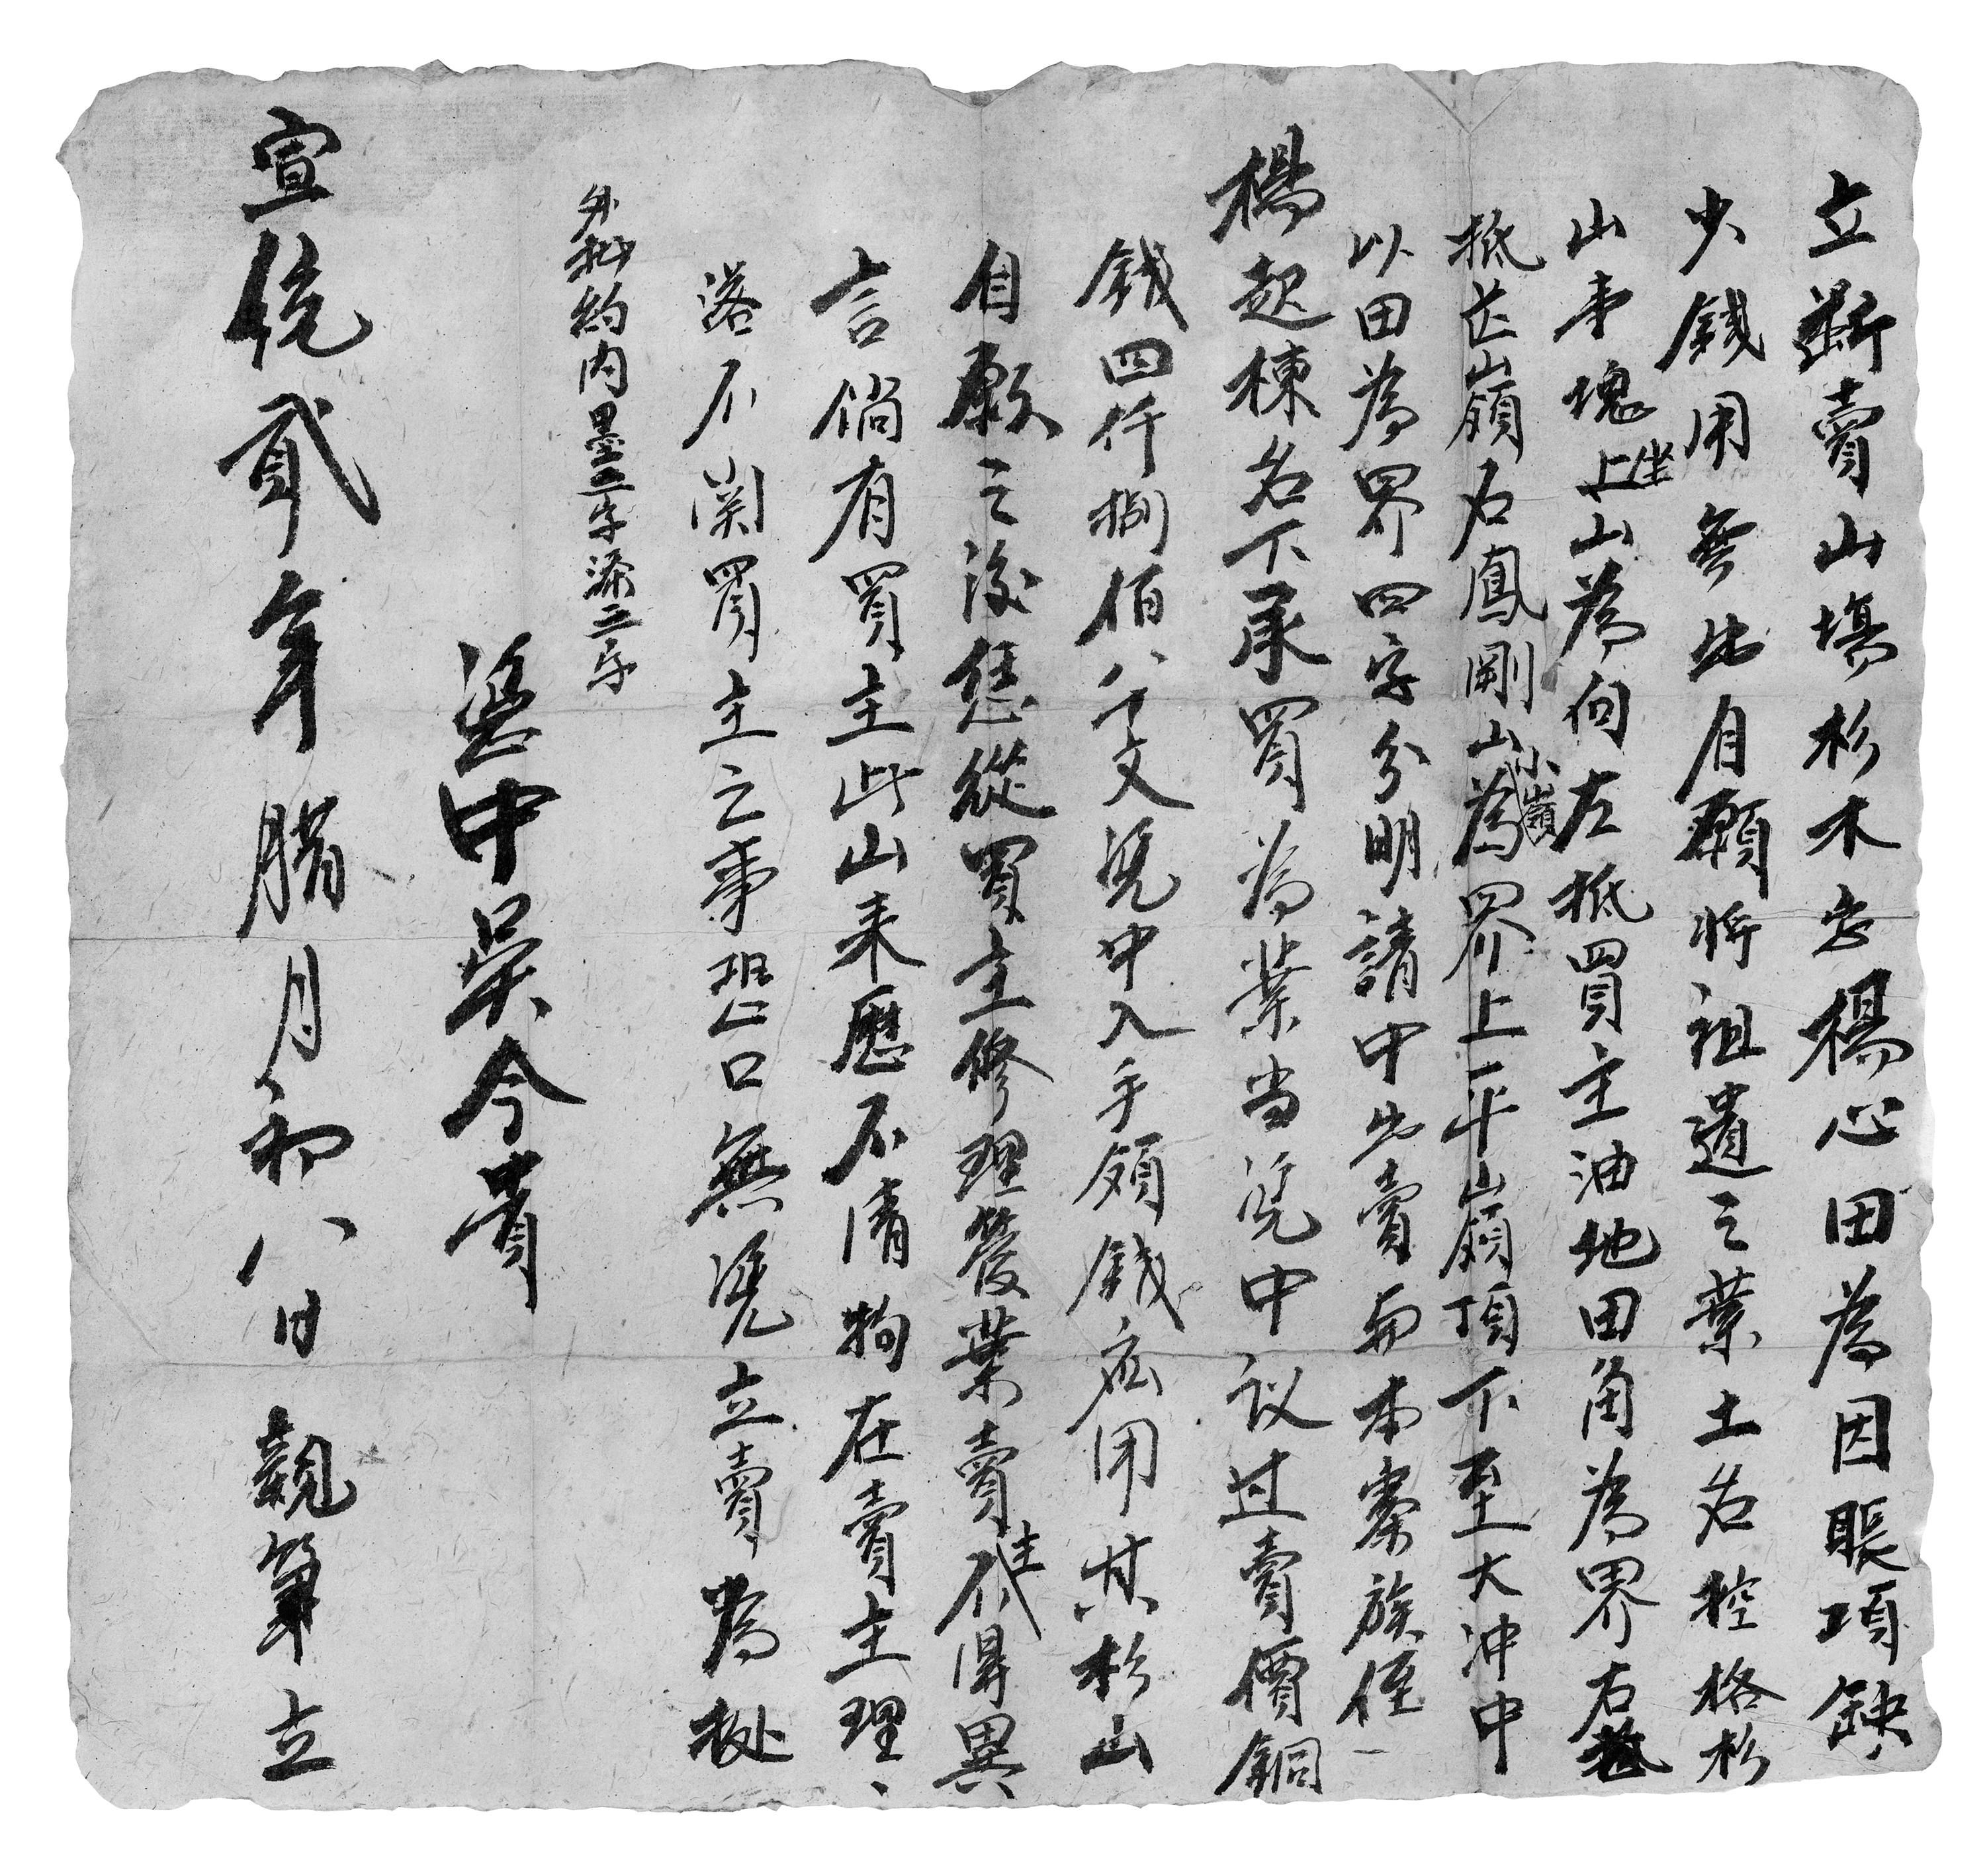 立斷賣山塲杉木字楊心田為因賬項缺
少錢用無出自願將祖遺之業土名控格杉
山夲塊坐上山為向左抵買主油地田角為界右抵
抵芒嶺右鳳剛山小嶺為界上平嶺頂下至大冲中
以田為界四字分明請中出賣與本寨族侄
楊起棟名下承買為業当凴中议过賣價銅
錢四仟捌佰八十文凴中入手領錢应用其杉山
自願之後恁從買主修理管業賣主不得異
言倘有買主此山来歷不清拘在賣主理
落不関買主之事恐口無凴立賣為㨿
外批約内墨三字添三字
凴中吴今貴
宣統貳年腊月初八日親筆立